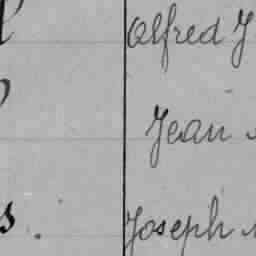 Alfred J
Jean
s. Joseph